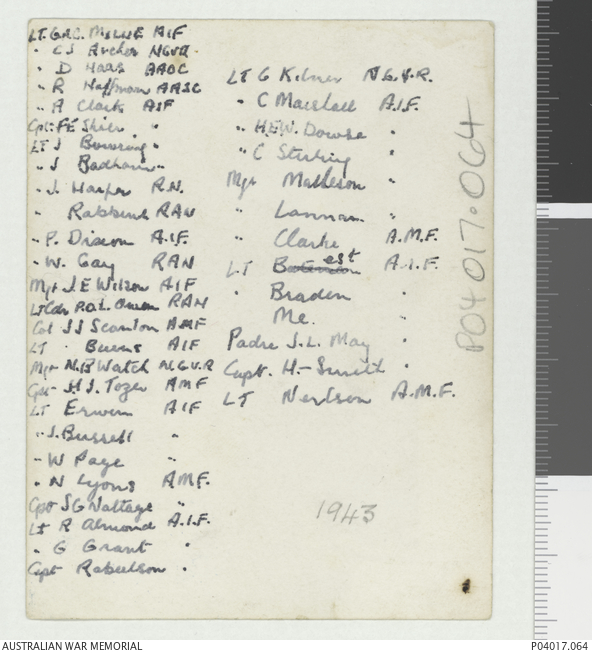 LT. G.A.C. MILNE AIF
" C J Archer NGVR
" D Haas AAOC
" R Hoffman AASC
" A Clark AIF
Cpt. F E Skier "
LT J Burring "
" J Badham "
" J. Harper R.N.
" Robbins RAN
" P. Dixon A.I.F.
" W. Gay RAN
Mjr J.E Wilson AIF
Lt Cdr R.O.L. Owen RAN
Col J J Scanlan AMF
LT " Burns AIF
Mjr N.B Watch N.G.V.R
Cpt H.J. Tozer AMF
LT Erwin AIF
" J. Bussell "
" W Page "
" N Lyons AMF.
Cpt S G Nottage "
Lt R Almond A.I.F.
" G Grant "
Capt Robertson "
LT G Kilner N.G.V.R.
" C Marshall A.I.F.
" H.E.W. Dowse "
" C Stirling "
Mjr Matheson "
" Lannan "
" Clarke A.M.F.
LT Best A.I.F.
" Braden "
" Mc. "
Padre J.L. May "
Capt. H-Smith "
LT A.M.F.
1943
P04017.064
AUSTRALIAN WAR MEMORIAL
P04017.064